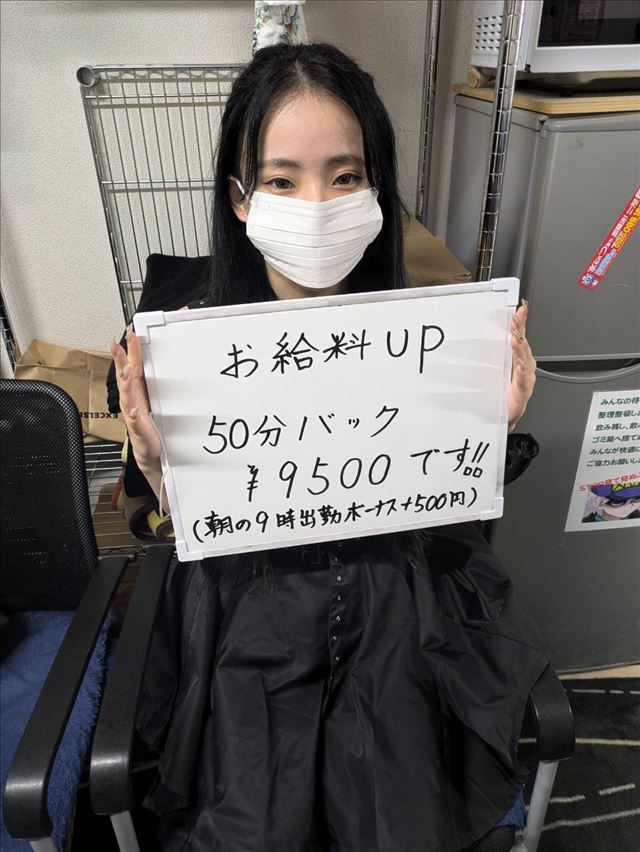 お給料UP
50分バック
¥9500です!!
(朝の9時出勤ボーナス+500円)
EXCELSI
みんなの待
整理整頓し
飲み残し、飲
ゴミ箱へ捨て
みんなが快適に
ご協力お願いし